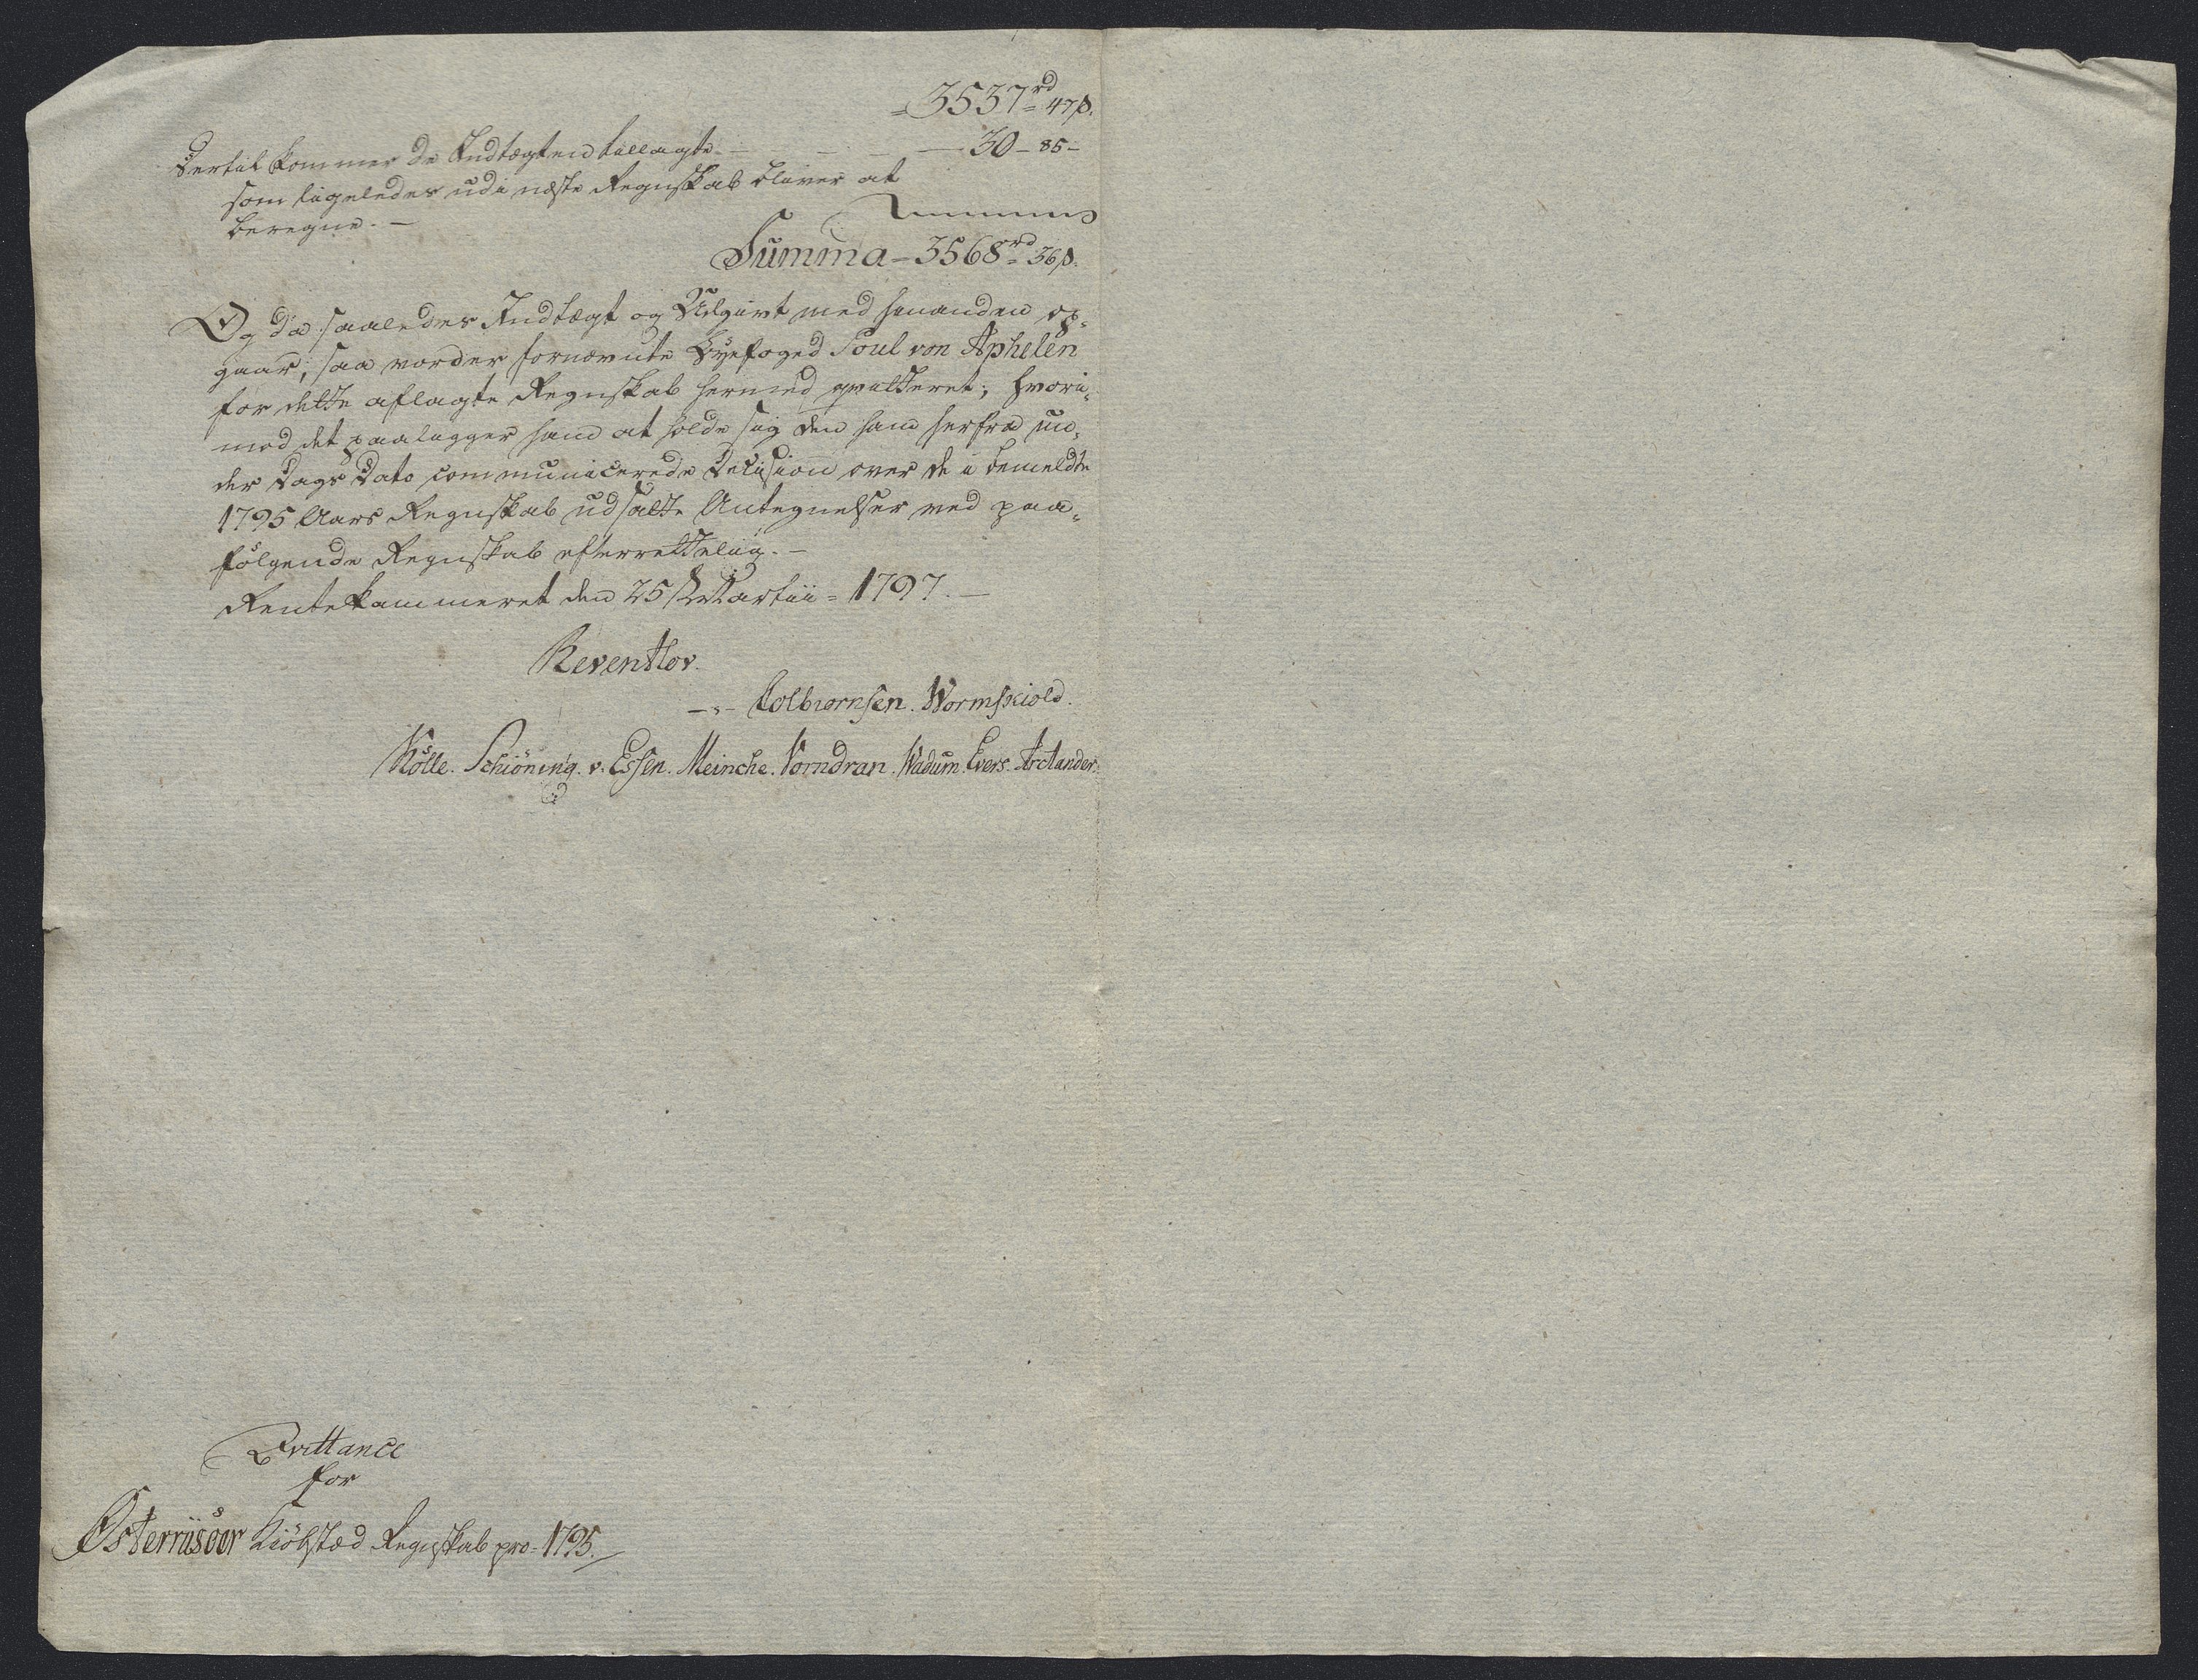 3537rd 47ß.
Dertil kommer de Indtægten tillagte — — — — 30 — 85 —
som ligeledes udi næste Regnskab bliver at
beregne. —
Summa = 3568rd 36ß.
Og da saaledes Indtægt og Udgivt med hinanden op-
gaar; saa vorder fornævnte Byefoged Poul von Aphelen
for dette aflagte Regnskab hermed qvitteret; hvori-
mod det paaligger ham at holde sig den ham herfra un-
der Dags Dato communicerede Decision over de i bemeldte
1795 Aars Regnskab udsatte Antegnelser ved paa-
følgende Regnskab efterrettelig. —
Rentekammeret den 25 Martii = 1797. —
Reventlov.
Colbiørnsen. Wormskiold.
Kølle. Schiöning. v. Essen. Meinche. Vorndran. Wadum. Evers. Arctander.
Qvittance
for
Østerriisöer Kiöbstæd Regnskab pro. 1795.